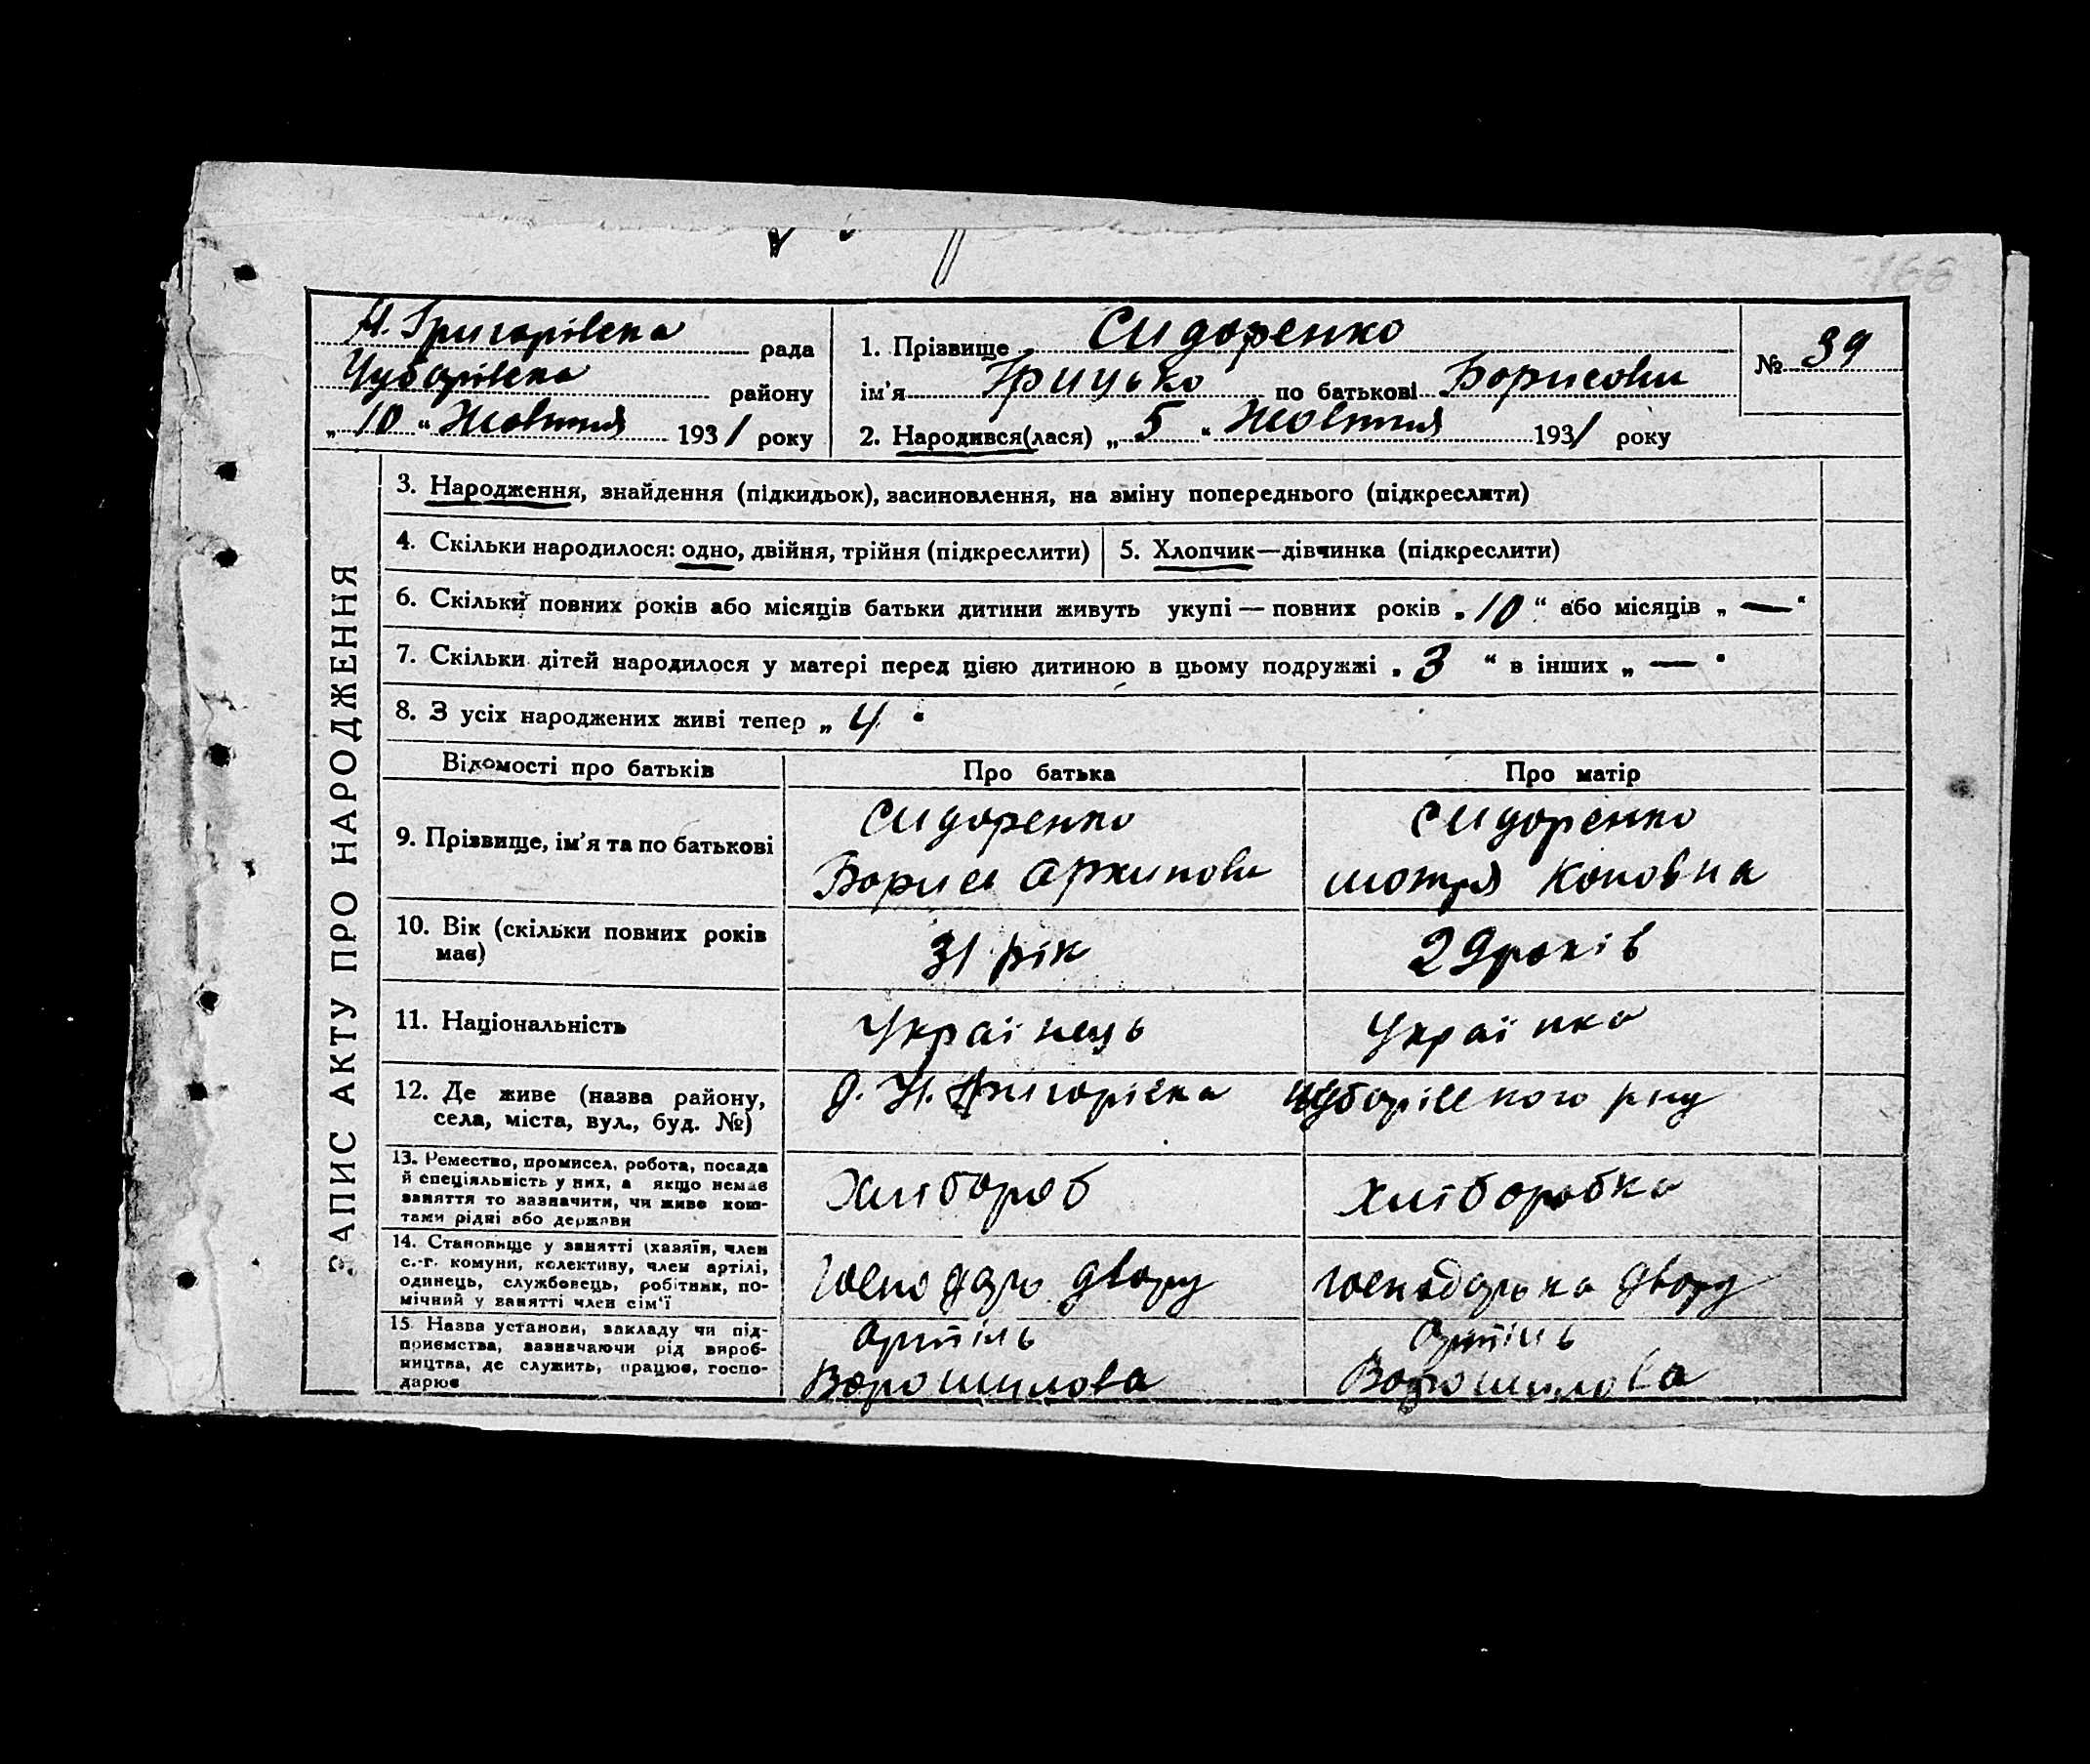 166
Н. Григорівська рада
Чубарівська району
„10“ Жовтня 1931 року
1. Прізвище Сидоренко
ім’я Грицько по батькові Борисович
2. Народився(лася) „5“ Жовтня 1931 року
№ 39
ЗАПИС АКТУ ПРО НАРОДЖЕННЯ
3. Народження, знайдення (підкидьок), засиновлення, на зміну попереднього (підкреслити)
4. Скільки народилося: одно, двійня, трійня (підкреслити)
5. Хлопчик—дівчинка (підкреслити)
6. Скільки повних років або місяців батьки дитини живуть укупі — повних років „10“ або місяців „—“
7. Скільки дітей народилося у матері перед цією дитиною в цьому подружжі „3“ в інших „—“
8. З усіх народжених живі тепер „4“
Відомості про батьків
Про батька
Про матір
9. Прізвище, ім’я та по батькові
Сидоренко
Борис Архипович
Сидоренко
Мотря
10. Вік (скільки повних років
має)
31 рік
29 років
11. Національність
Українець
Українка
12. Де живе (назва району,
села, міста, вул., буд. №)
Н. Григорівка Чубарівського р-ну
13. Ремество, промисел, робота, посада
й спеціяльність у них, а якщо немає
заняття то зазначити, чи живе кош-
тами рідні або держави
Хлібороб
Хліборобка
14. Становище у занятті (хазяїн, член
с.-г. комуни, колективу, член артілі,
одинець, службовець, робітник, по-
мічний у занятті член сім’ї
Господарь двору
Господарька двору
15. Назва установи, закладу чи під-
приємства, зазначаючи рід вироб-
ництва, де служить, працює, госпо-
дарює
Артіль
Ворошилова
Артіль
Ворошилова